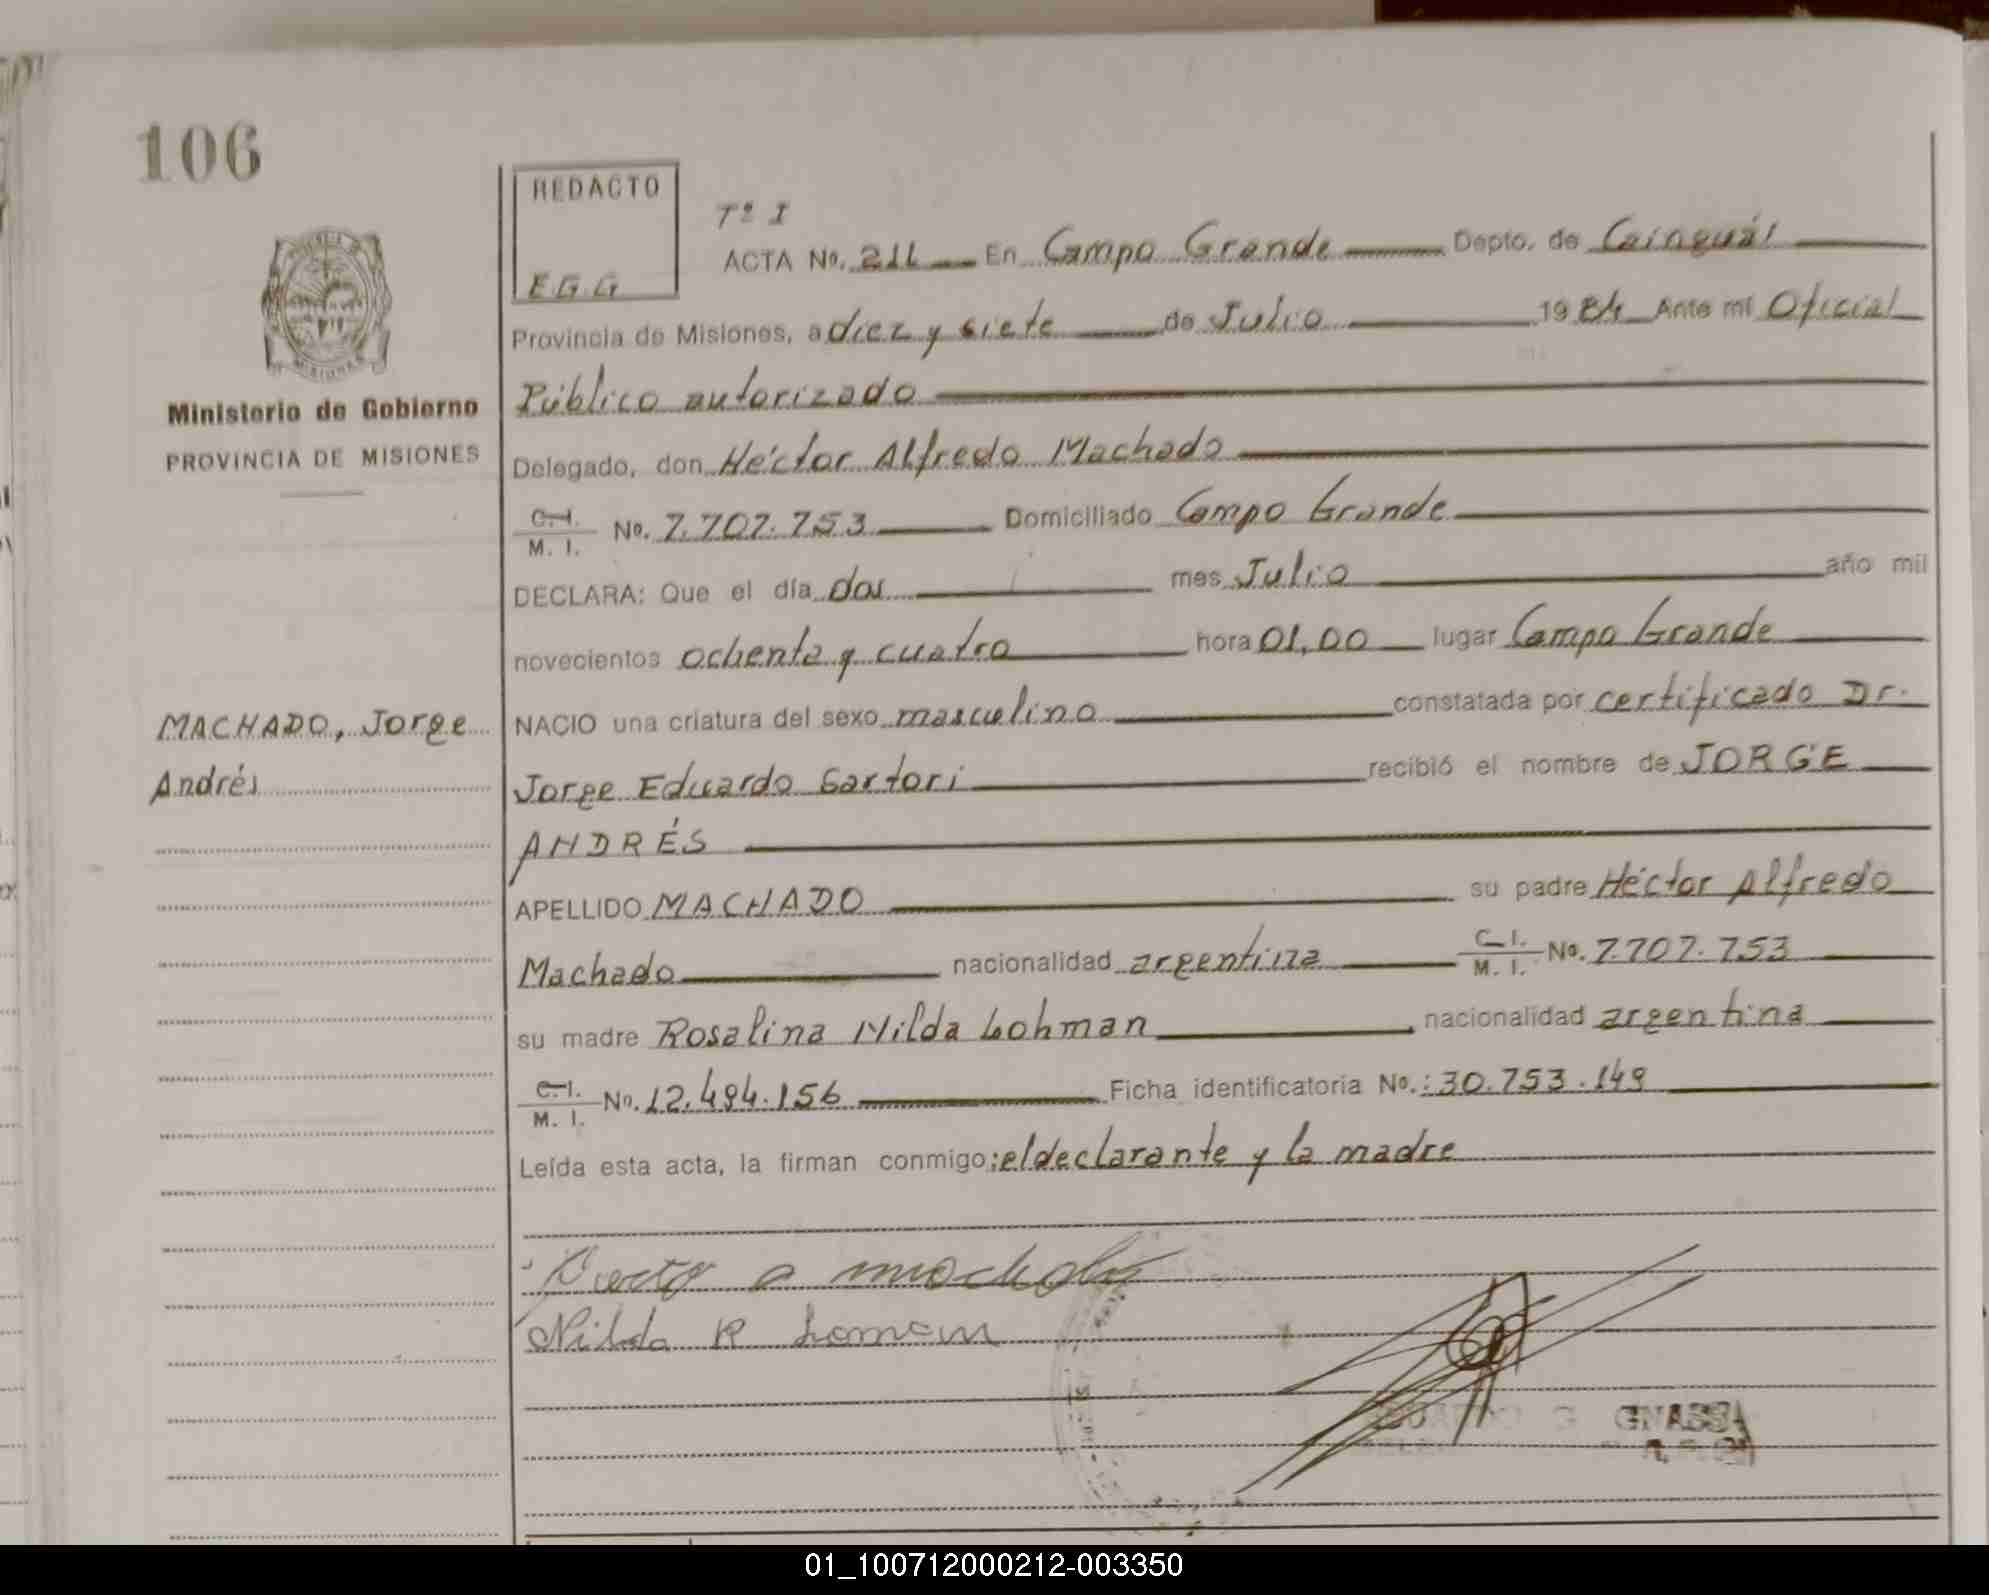 106
REDACTO
E.G.G
Tº I
ACTA No. 211 En Campo Grande Depto. de Cainguás
Provincia de Misiones, a diez y siete de Julio 1984 Ante mí Oficial
Público autorizado
Delegado, don Héctor Alfredo Machado
C.I. M. I. No. 7.707.753 Domiciliado Campo Grande
DECLARA: Que el día dos mes Julio año mil
novecientos ochenta y cuatro hora 01,00 lugar Campo Grande
NACIO una criatura del sexo masculino constatada por certificado Dr.
Jorge Eduardo Sartori recibió el nombre de JORGE
ANDRÉS
APELLIDO MACHADO su padre Héctor Alfredo
Machado nacionalidad argentina C.I. M. I. No. 7.707.753
su madre Rosalina Nilda Lohman nacionalidad argentina
C.I. M. I. No. 12.494.156 Ficha identificatoria No.: 30.753.149
Leída esta acta, la firman conmigo: el declarante y la madre
Ministerio de Gobierno
PROVINCIA DE MISIONES
MACHADO, Jorge
Andrés
a machado
Nilda R
01_100712000212-003350